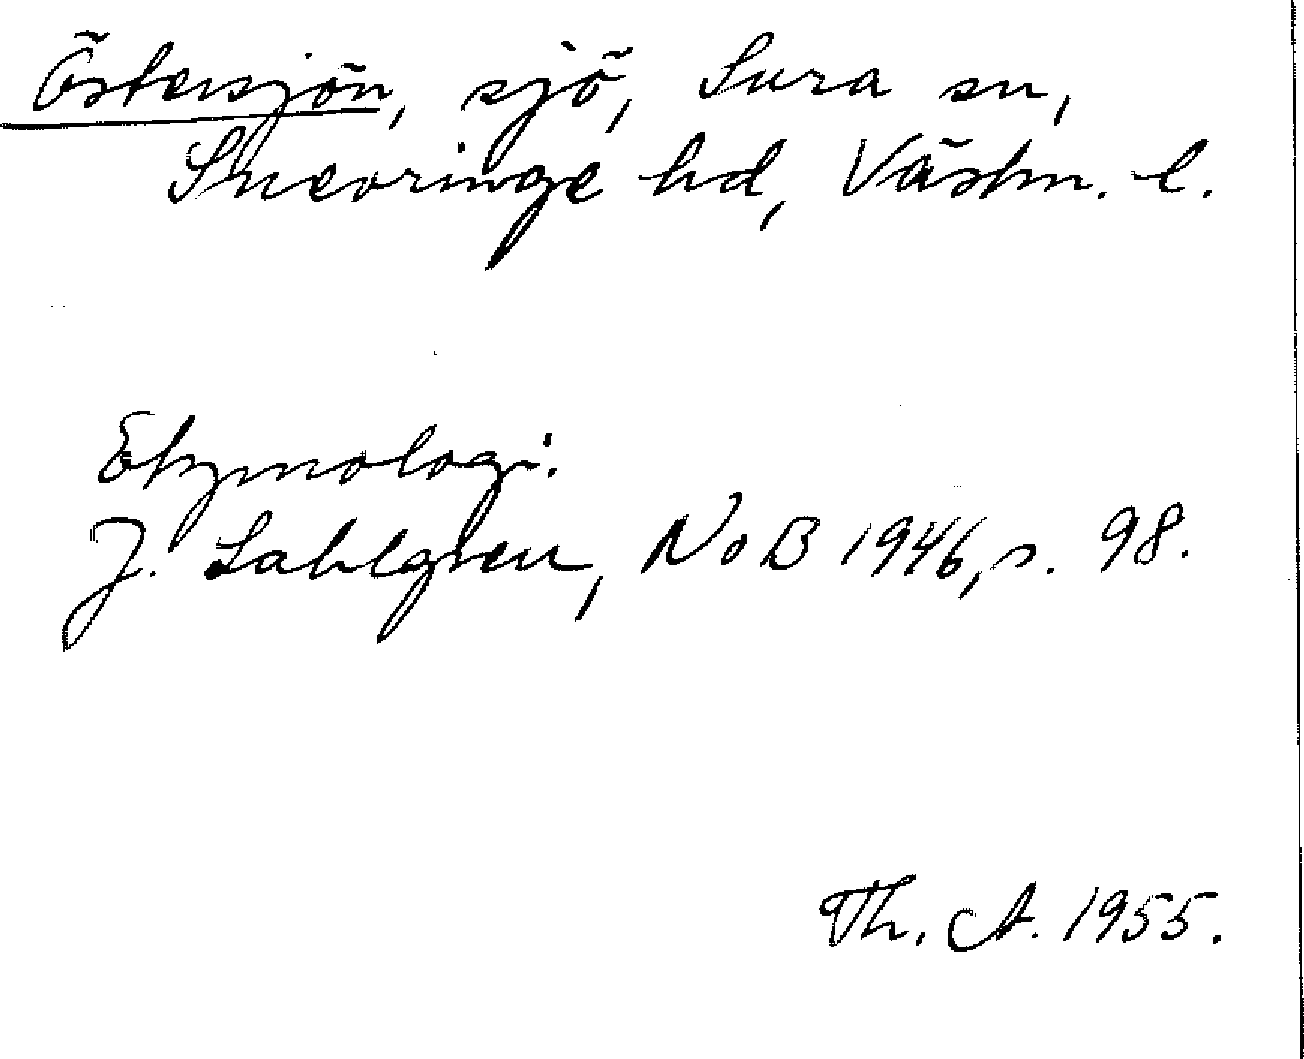 Östersjön, sjö, Sura sn,
Snevringe hd, Västm. l.
Etymologi.
J. Sahlgren, NoB 1946, s. 98.
Th. A. 1955.